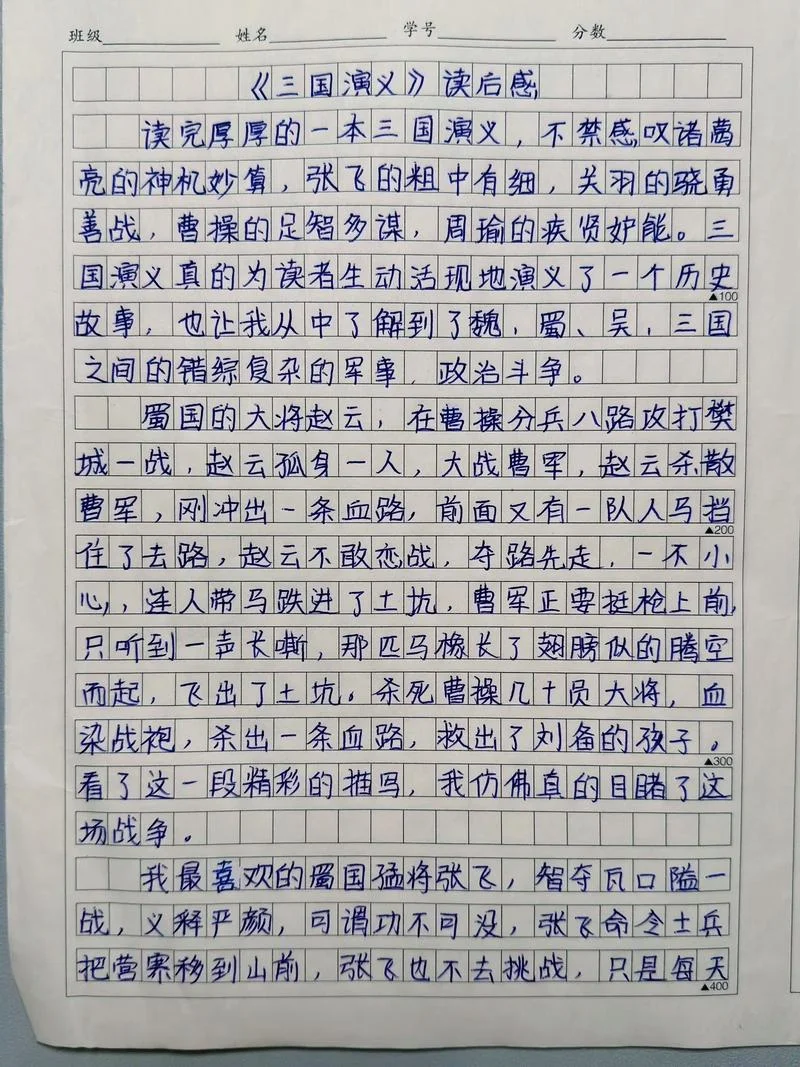 班级 姓名 学号 分数
《三国演义》读后感
读完厚厚的一本三国演义，不禁感叹诸葛
亮的神机妙算，张飞的粗中有细，关羽的骁勇
善战，曹操的足智多谋，周瑜的疾贤妒能。三
国演义真的为读者生动活现地演义了一个历史
▲100
故事，也让我从中了解到了魏、蜀、吴，三国
之间的错综复杂的军事，政治斗争。
蜀国的大将赵云，在曹操分兵八路攻打樊
城一战，赵云孤身一人，大战曹军，赵云杀散
曹军，刚冲出一条血路，前面又有一队人马挡
▲200
住了去路，赵云不敢恋战，夺路先走，一不小
心，连人带马跌进了土坑，曹军正要挺枪上前，
只听到一声长嘶，那匹马橡长了翅膀似的腾空
而起，飞出了土坑。杀死曹操几十员大将，血
染战袍，杀出一条血路，救出了刘备的孩子。
▲300
看了这一段精彩的描写，我仿佛真的目睹了这
场战争。
我最喜欢的蜀国猛将张飞，智夺瓦口隘一
战，义释严颜，可谓功不可没，张飞命令士兵
把营寨移到山前，张飞也不去挑战，只是每天
▲400